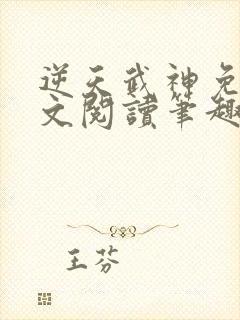 逆天武神免
文閱讀筆趣
王芬